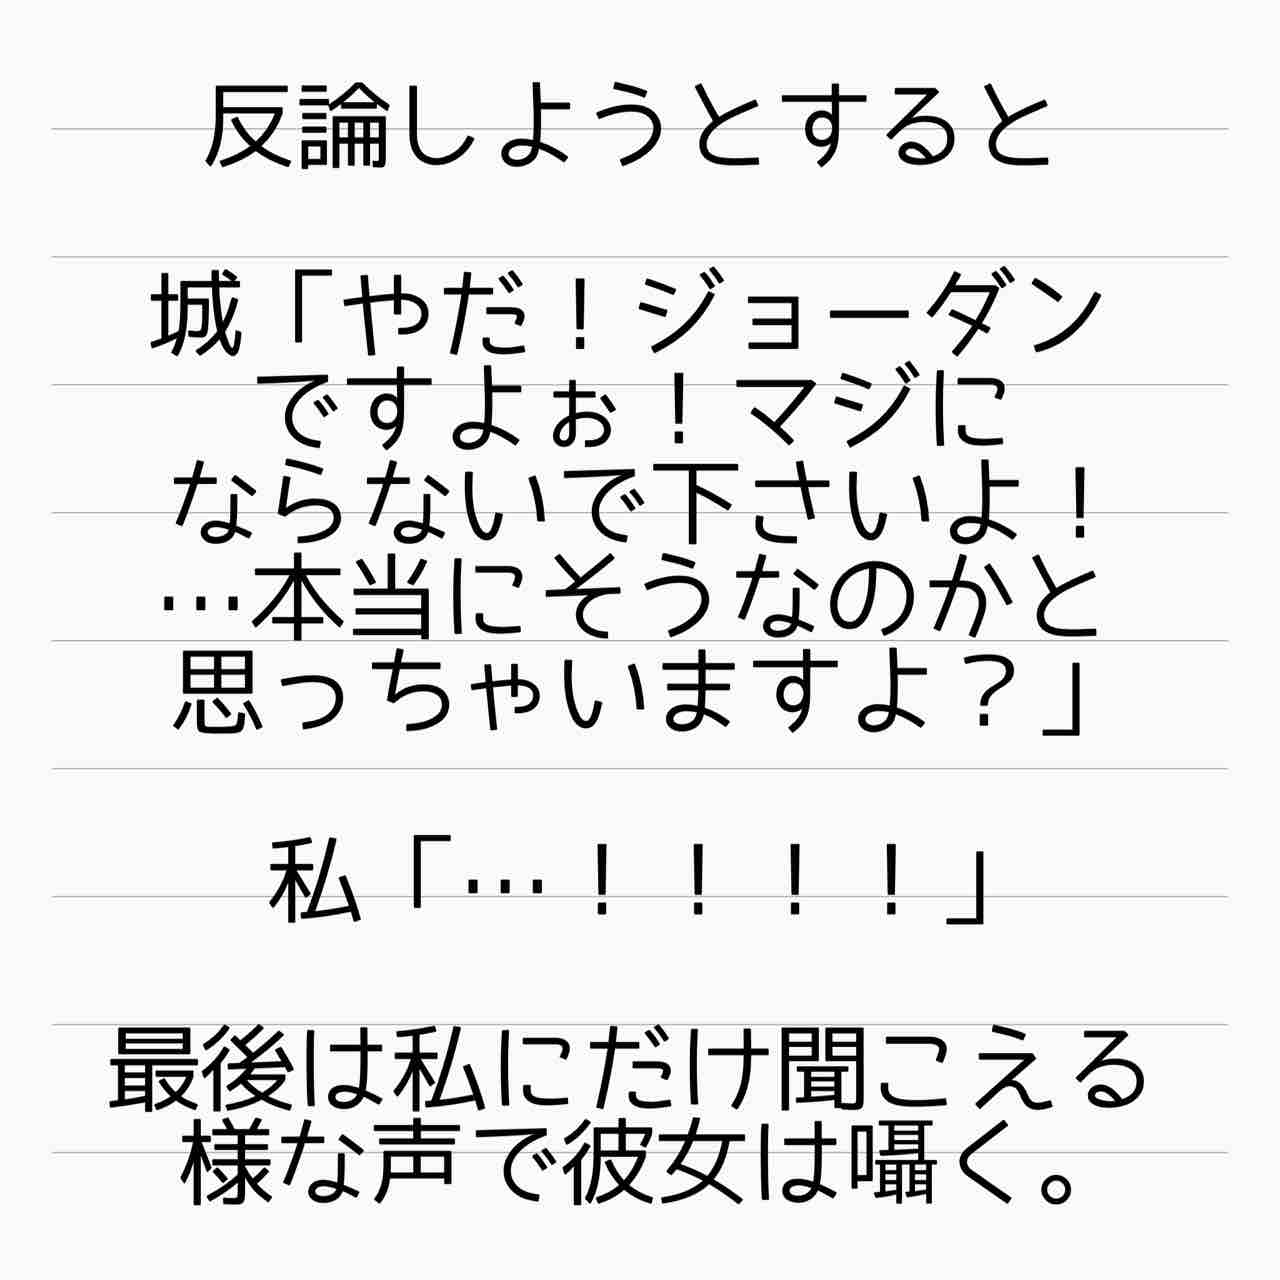 反論しようとすると
城「やだ！ジョーダン
ですよぉ！マジに
ならないで下さいよ！
…本当にそうなのかと
思っちゃいますよ？」
私「…！！！！」
最後は私にだけ聞こえる
様な声で彼女は囁く。